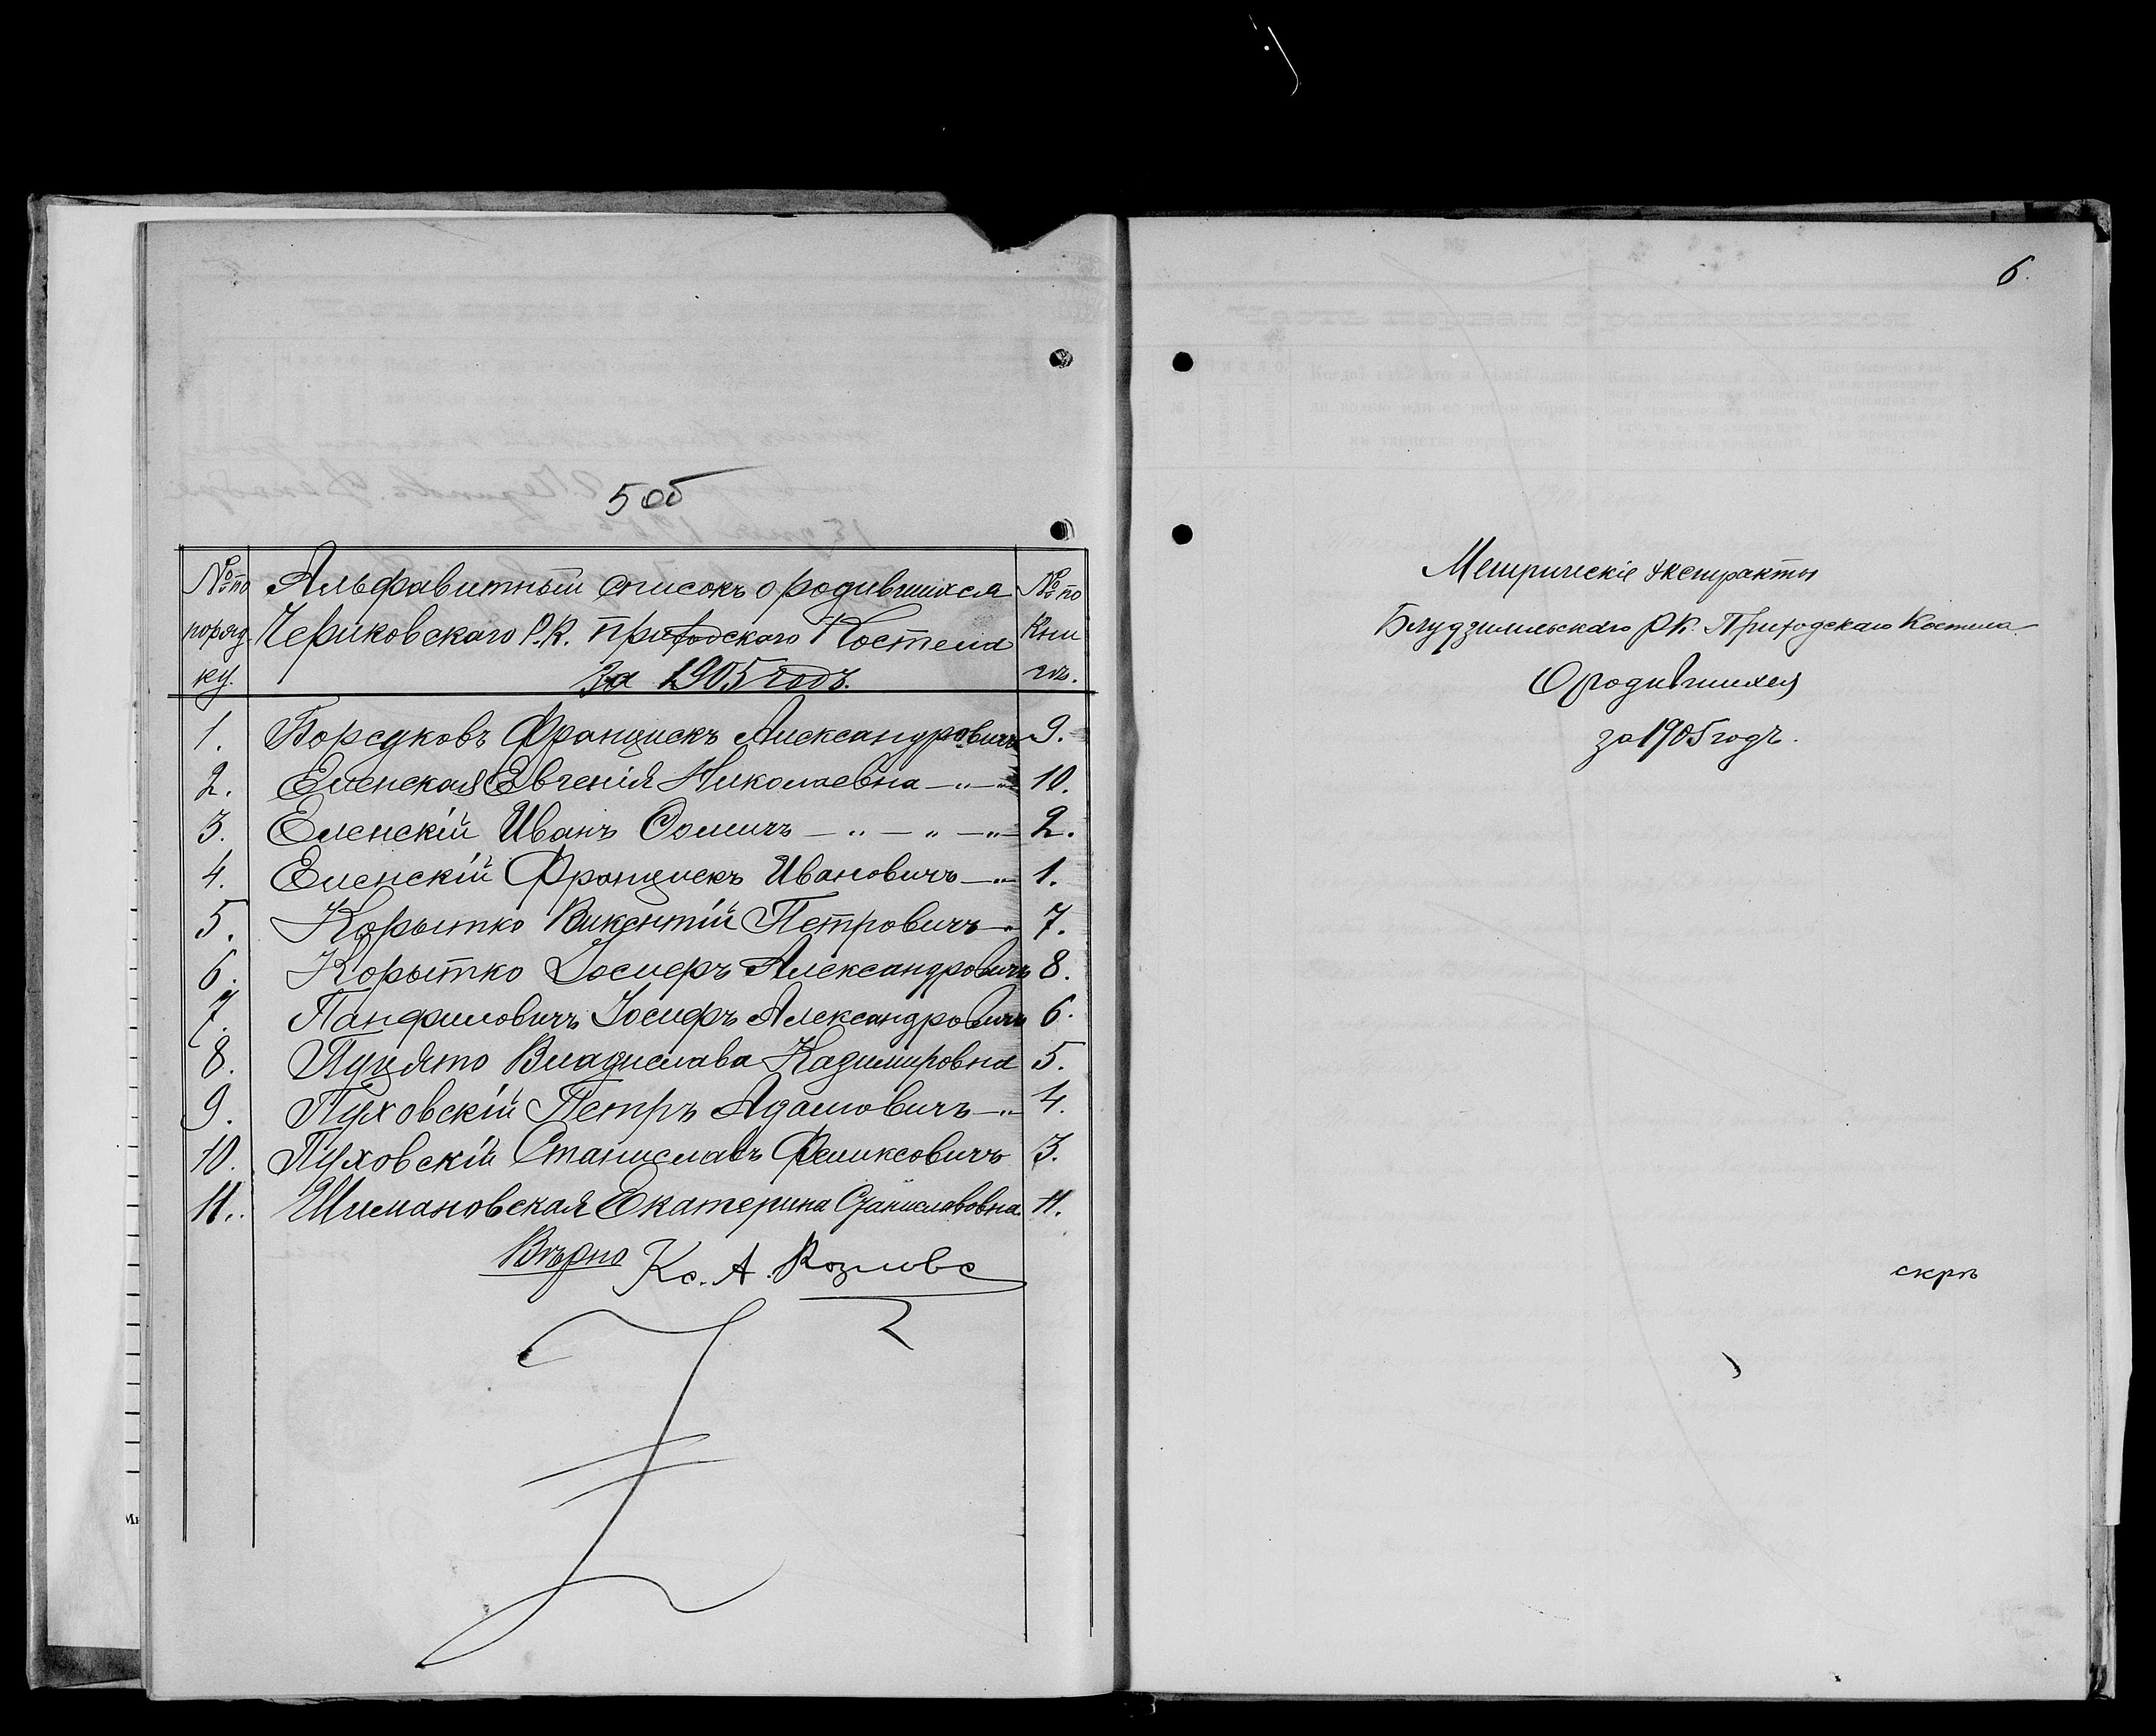 5 об
№ по Альфавитный списокъ о родившихся № по
поряд Чериковскаго Р.К. приходскаго Костела Кни
ку. за 1905 годъ. гѣ.
1. Борсуковъ Францискъ Александровичъ 9.
2. Еленская Евгенія Николаевна —"— 10.
3. Еленскій Иванъ —"—"—"— 2.
4. Еленскій Францискъ Ивановичъ —"— 1.
5. Корытко Викентій Петровичъ —"— 7.
6. Корытко Іосифъ Александровичъ 8.
7. Панфиловичъ Іосифъ Александровичъ 6.
8. Пуцято Владислава Казимировна 5.
9. Пуховскій Петръ Адамовичъ —"— 4.
10. Пуховскій Станиславъ Феликсовичъ 3.
11. Шимановская Екатерина Станиславовна 11.
Вѣрно Кс. А.
6.
Метрическіе экстракты
Р.К. Приходскаго Костела
О родившихся
за 1905 годъ.
скрѣ